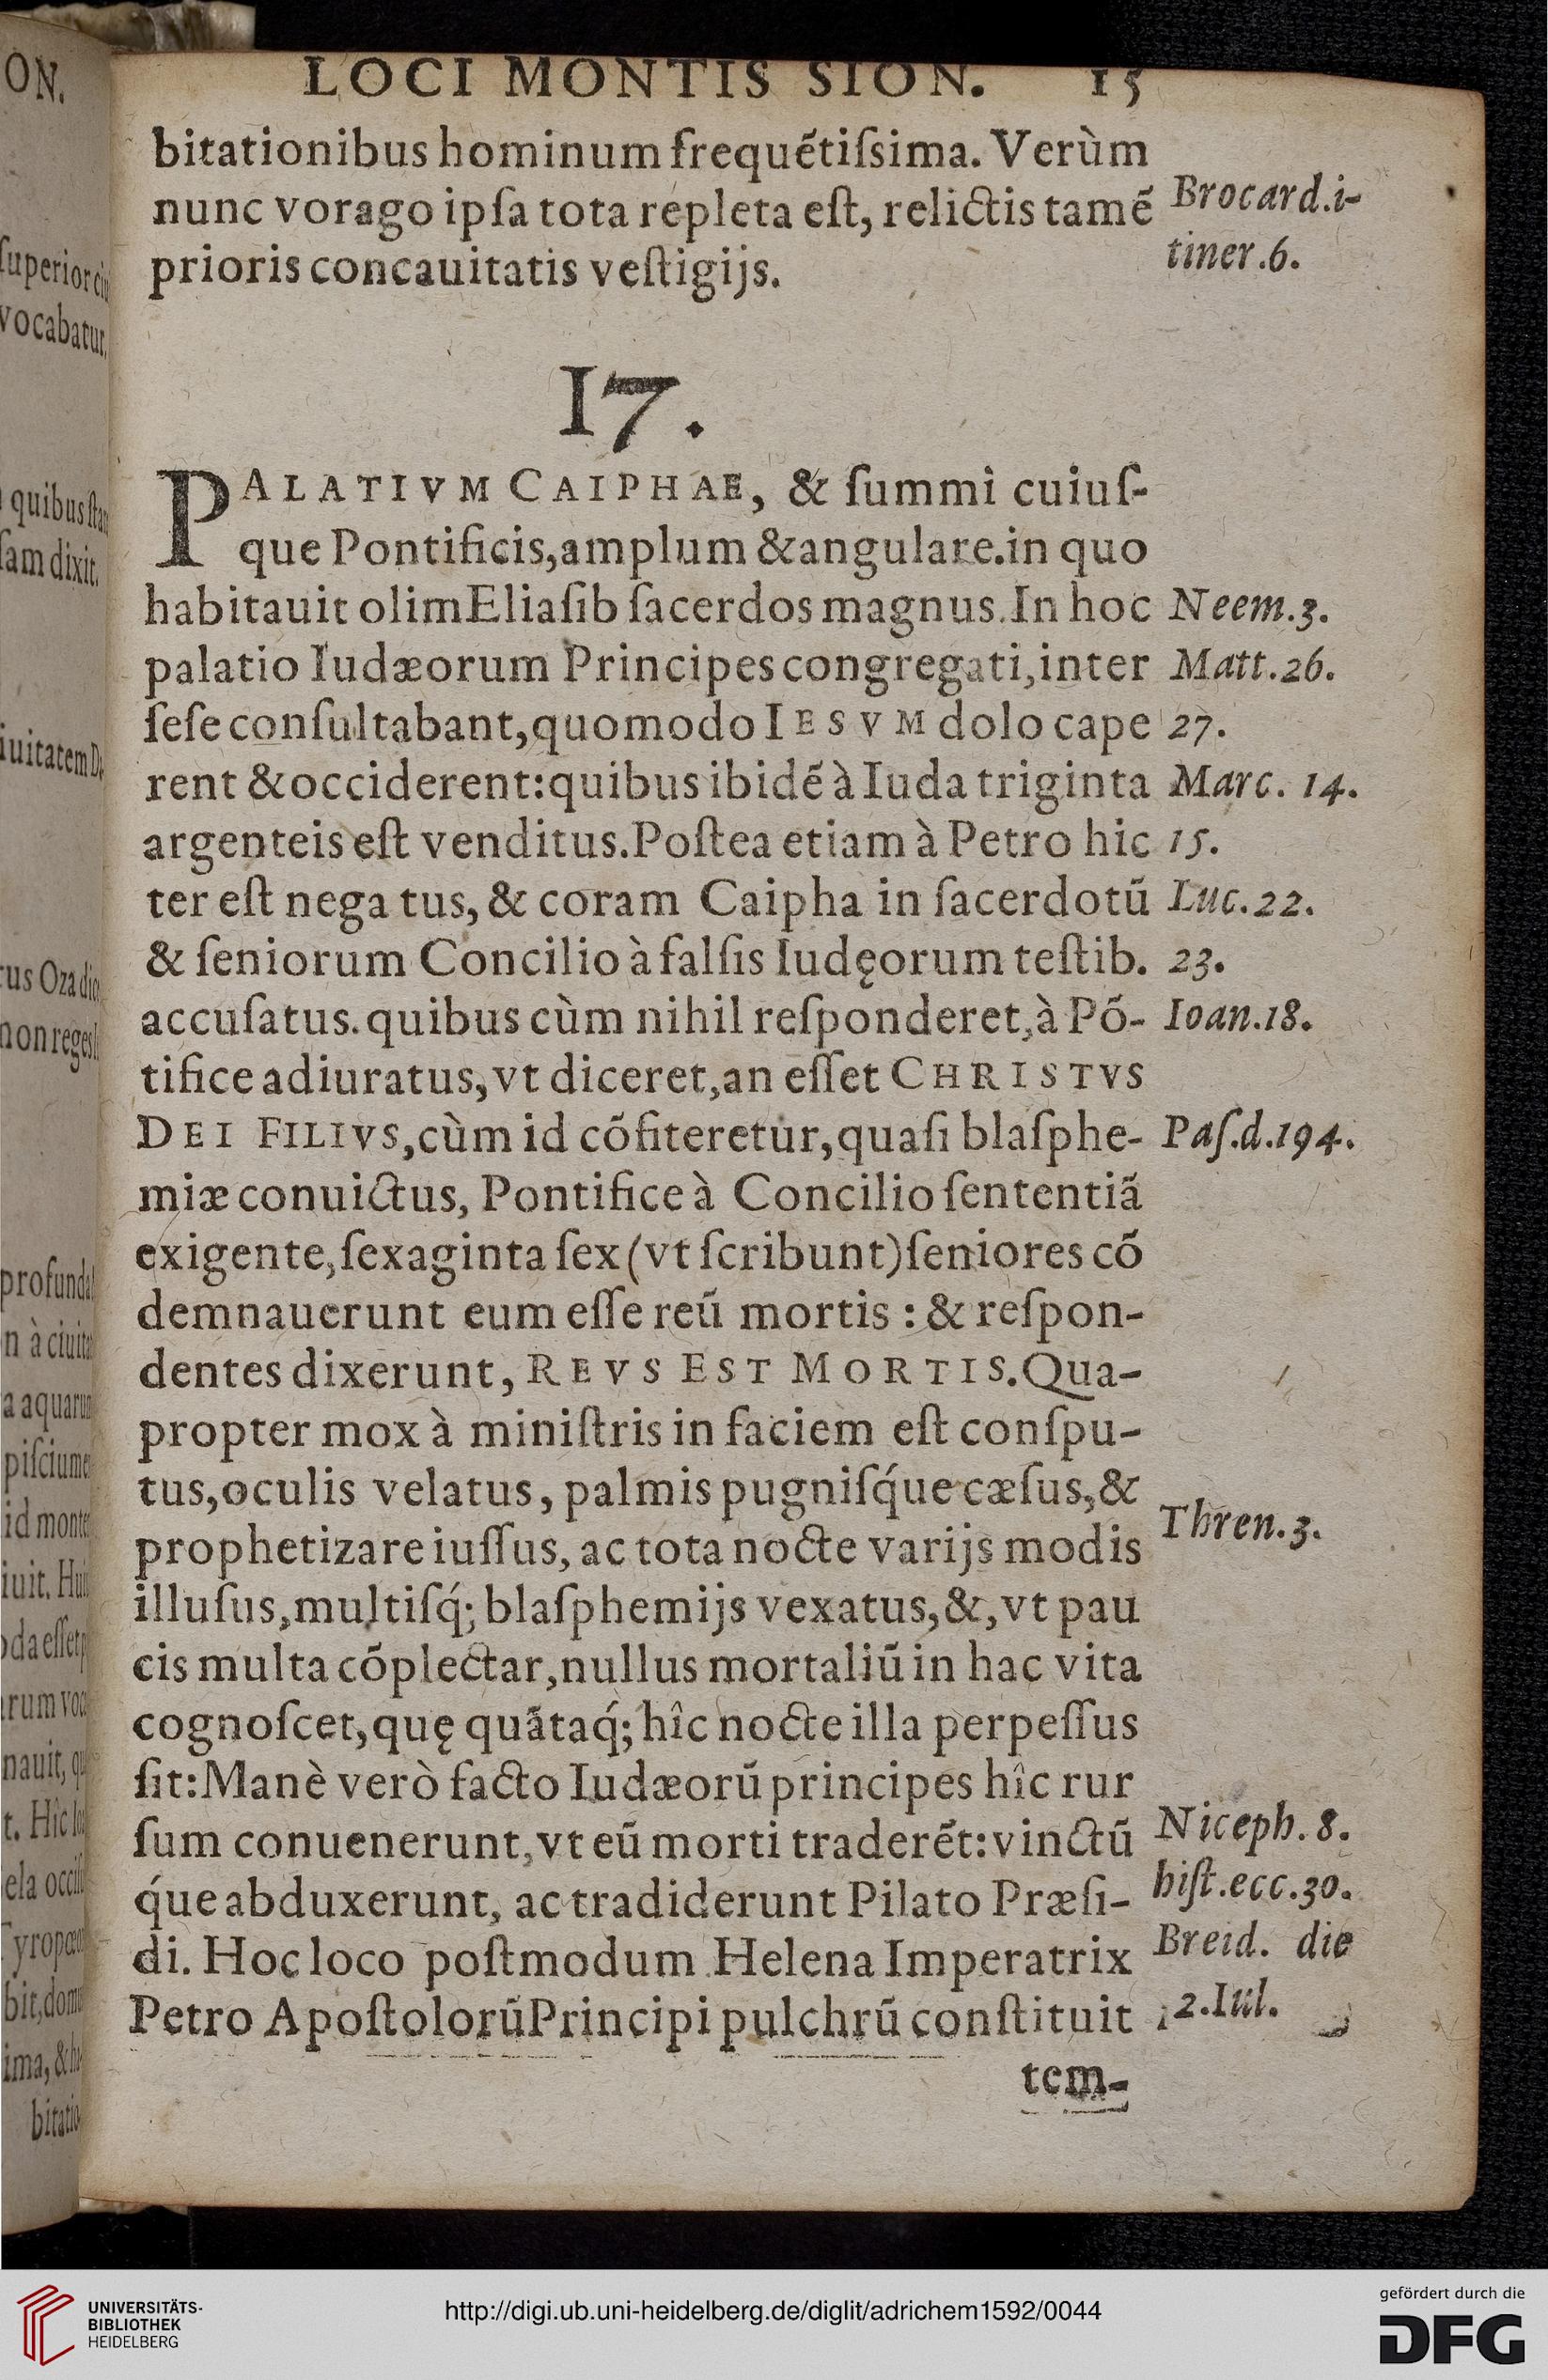 LOCI MONTIS SION. 15
bitationibus hominum frequẽtiſsima. Verùm
nunc vorago ipſa tota repleta eſt, relictis tamẽ
prioris concauitatis veſtigijs.
Brocard.i-
tiner.6.
17.
PALATIVM CAIPHAE, & ſummi cuiuſ-
que Pontificis,amplum &angulare.in quo
habitauit olim Eliaſib ſacerdos magnus.In hoc
palatio Iudæorum Principes congregati,inter
ſeſe conſultabant,quomodo IESVM dolo cape
rent &occiderent:quibus ibidẽ à Iuda triginta
argenteis eſt venditus.Poſtea etiam à Petro hic
ter eſt nega tus, & coram Caipha in ſacerdotũ
& ſeniorum Concilio à falſis Iudęorum teſtib.
accuſatus.quibus cùm nihil reſponderet,à Põ-
tifice adiuratus, vt diceret,an eſſet CHRISTVS
DEI FILIVS,cùm id cõfiteretur,quaſi blaſphe-
miæ conuictus, Pontifice à Concilio ſententiã
exigente,ſexaginta ſex (vt ſcribunt)ſeniores cõ
demnauerunt eum eſſe reũ mortis : & reſpon-
dentes dixerunt, REVS EST MORTIS.Qua-
propter mox à miniſtris in faciem eſt conſpu-
tus,oculis velatus, palmis pugniſq́ue cæſus,&
prophetizare iuſſus, ac tota nocte varijs modis
illuſus,multiſq́; blaſphemijs vexatus,&,vt pau
cis multa cõplectar,nullus mortaliũ in hac vita
cognoſcet,quę quãtaq́; hîc nocte illa perpeſſus
ſit:Manè verò facto Iudæorũ principes hîc rur
ſum conuenerunt,vt eũ morti traderẽt:vinctũ
q́ue abduxerunt, ac tradiderunt Pilato Præſi-
di. Hoc loco poſtmodum Helena Imperatrix
Petro Apoſtolorũ Principi pulchrũ conſtituit
tem-
Neem.3.
Matt.26.
27.
Marc. 14.
15.
Luc.22.
23.
Ioan.18.
Paſ.d.194.
Thren.3.
Niceph.8.
hiſt.ecc.30.
Breid. die
12.Iul.
ON.
ſuperior ciu
vocabatur.
quibus ſtan
ſam dixit.
iuitatem D
tus Oza dic
non reges
profunda
n à ciuita
a aquarum
piſcium
id monte
iuit. Hui
oda eſſet
rum voc
nauit, qu
t. Hîc lo
ela occiſ
yropæo
bit,domu
ima, & h
bitatio-
UNIVERSITÄTS-
BIBLIOTHEK
HEIDELBERG
http://digi.ub.uni-heidelberg.de/diglit/adrichem1592/0044
gefördert durch die
DFG